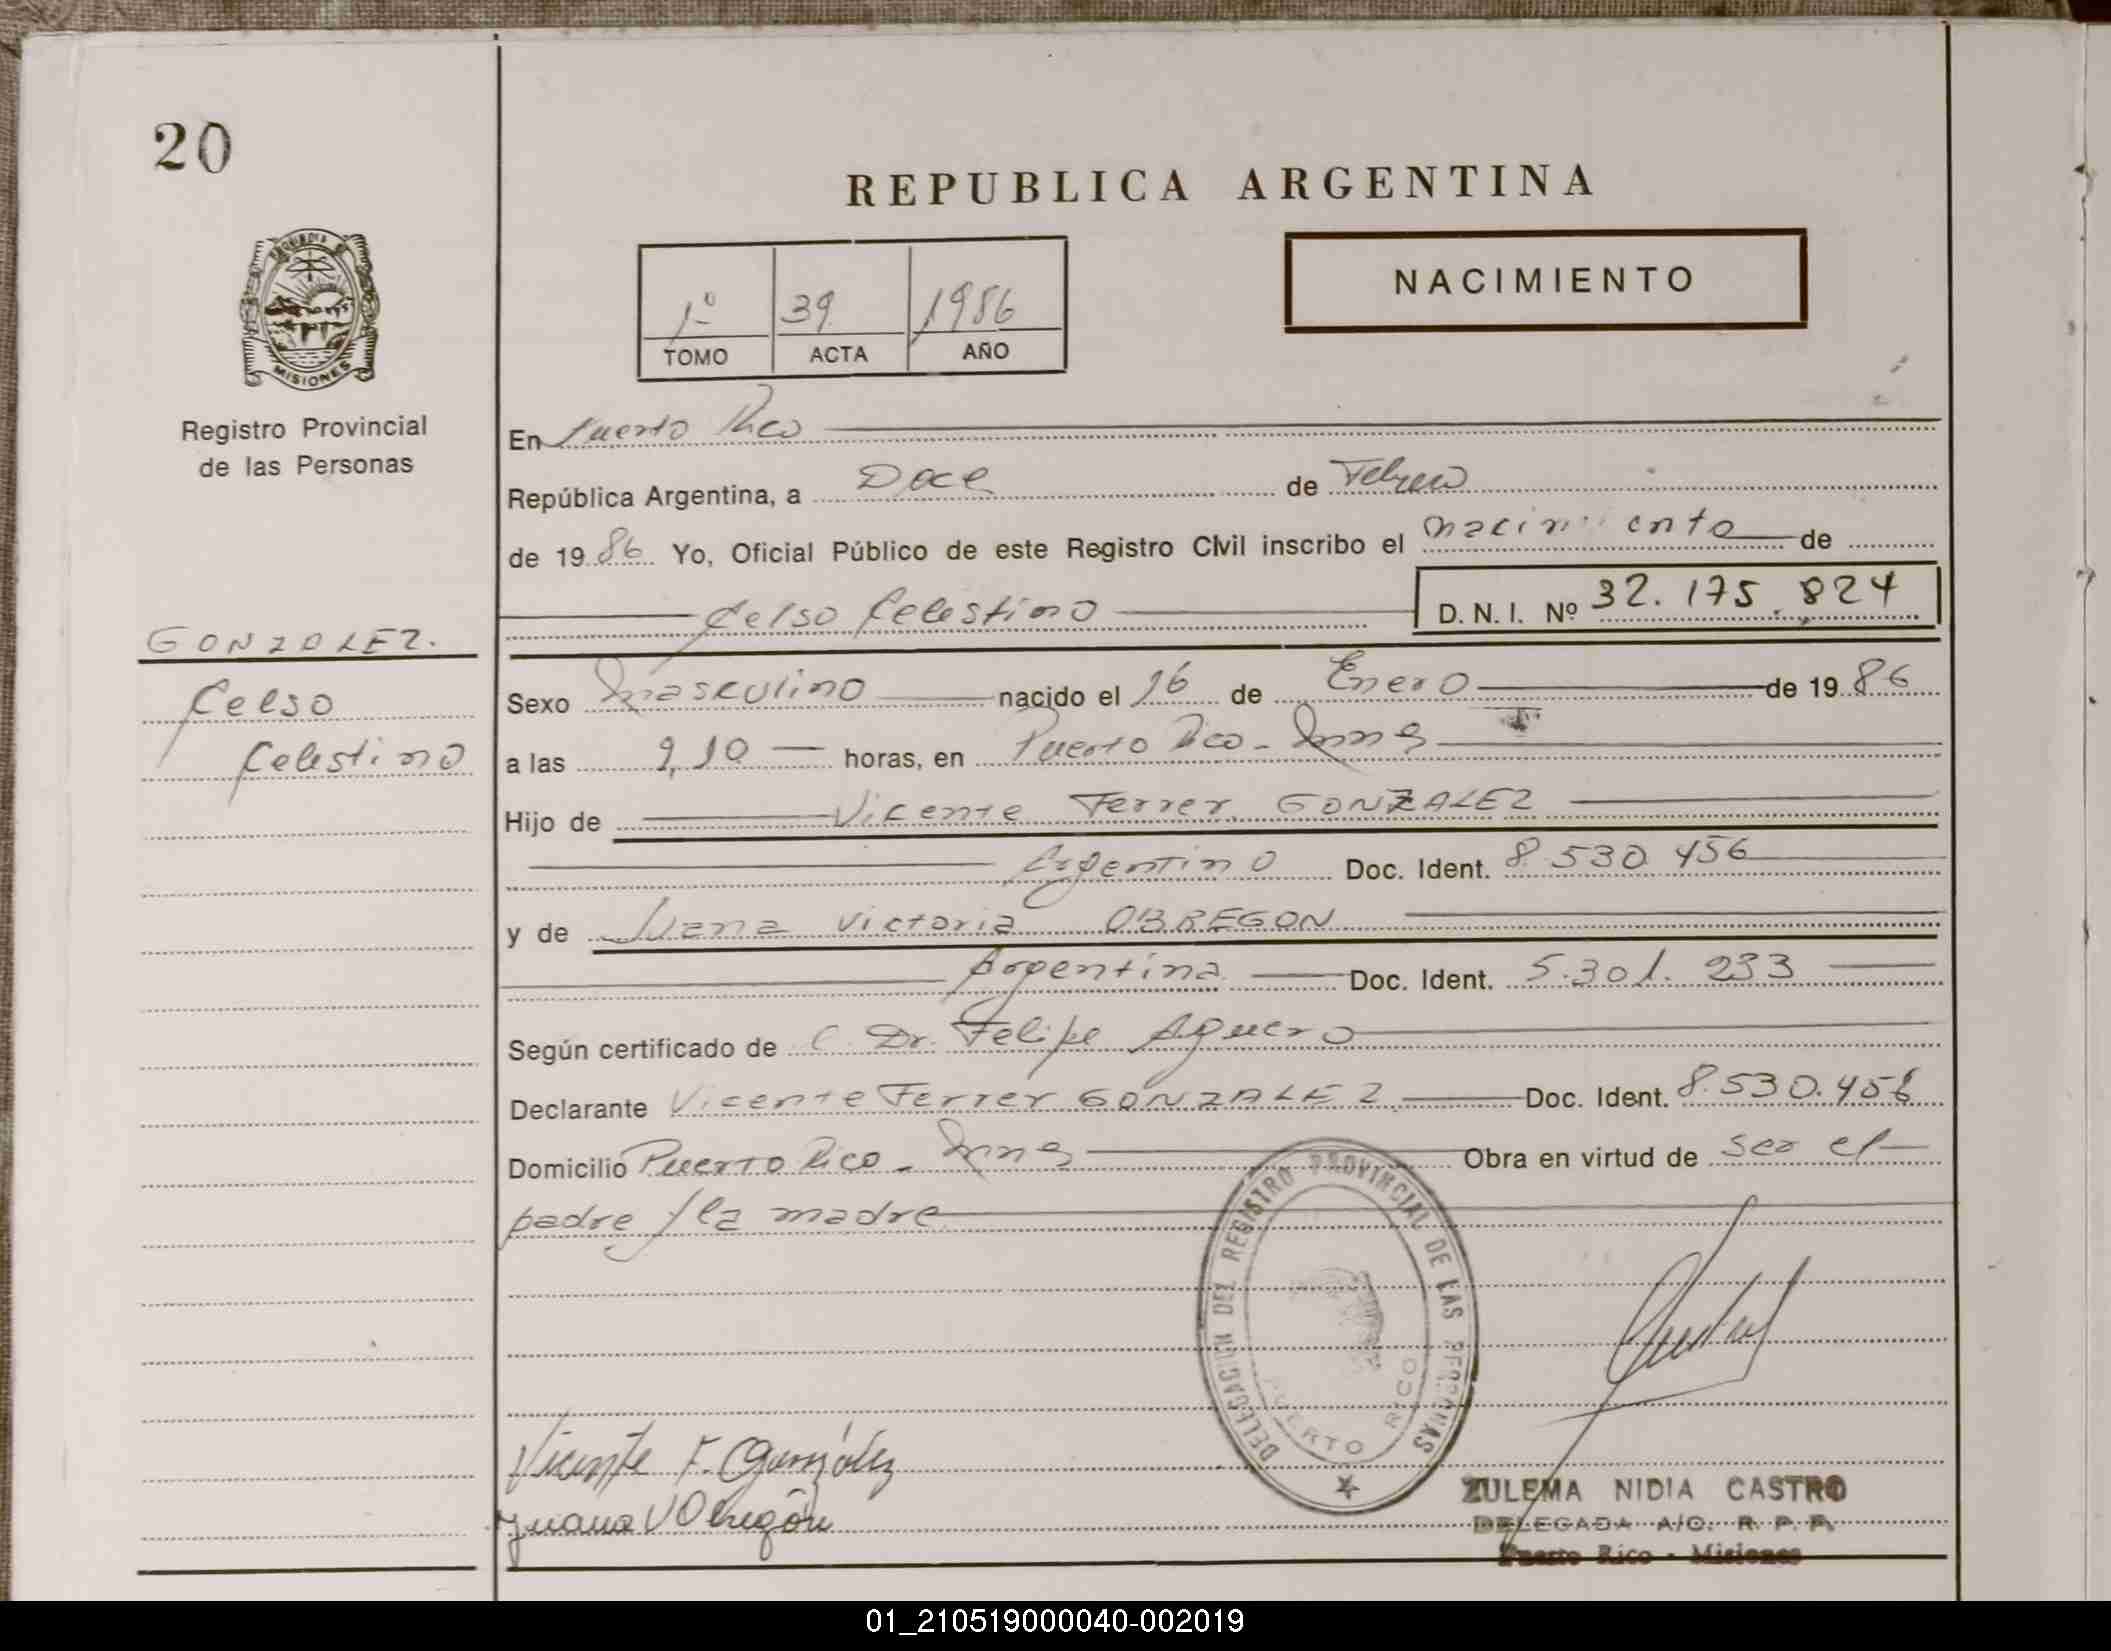 20
REPUBLICA ARGENTINA
NACIMIENTO
1º 39 1986
TOMO ACTA AÑO
MISIONES
Registro Provincial
de las Personas
GONZALEZ.
Celso
Celestino
En Puerto Rico
República Argentina, a Doce de Febrero
de 19 86 Yo, Oficial Público de este Registro Civil inscribo el nacimiento de
Celso Celestino D. N. I. Nº 32.175.824
Sexo masculino nacido el 16 de Enero de 19 86
a las 9,10 horas, en Puerto Rico - Mnes
Hijo de Vicente Ferrer GONZALEZ
Argentino Doc. Ident. 8.530.456
y de Juana Victoria OBREGON
Argentina Doc. Ident. 5.301.233
Según certificado de Dr. Felipe Aguero
Declarante Vicente Ferrer GONZALEZ Doc. Ident. 8.530.456
Domicilio Puerto Rico - Mnes Obra en virtud de ser el
padre y la madre
DELEGACION DEL REGISTRO PROVINCIAL DE LAS PERSONAS
PUERTO RICO
Vicente F. González
Juana V Obregón
ZULEMA NIDIA CASTRO
DELEGADA A/C. R. P. P.
Puerto Rico - Misiones
01_210519000040-002019